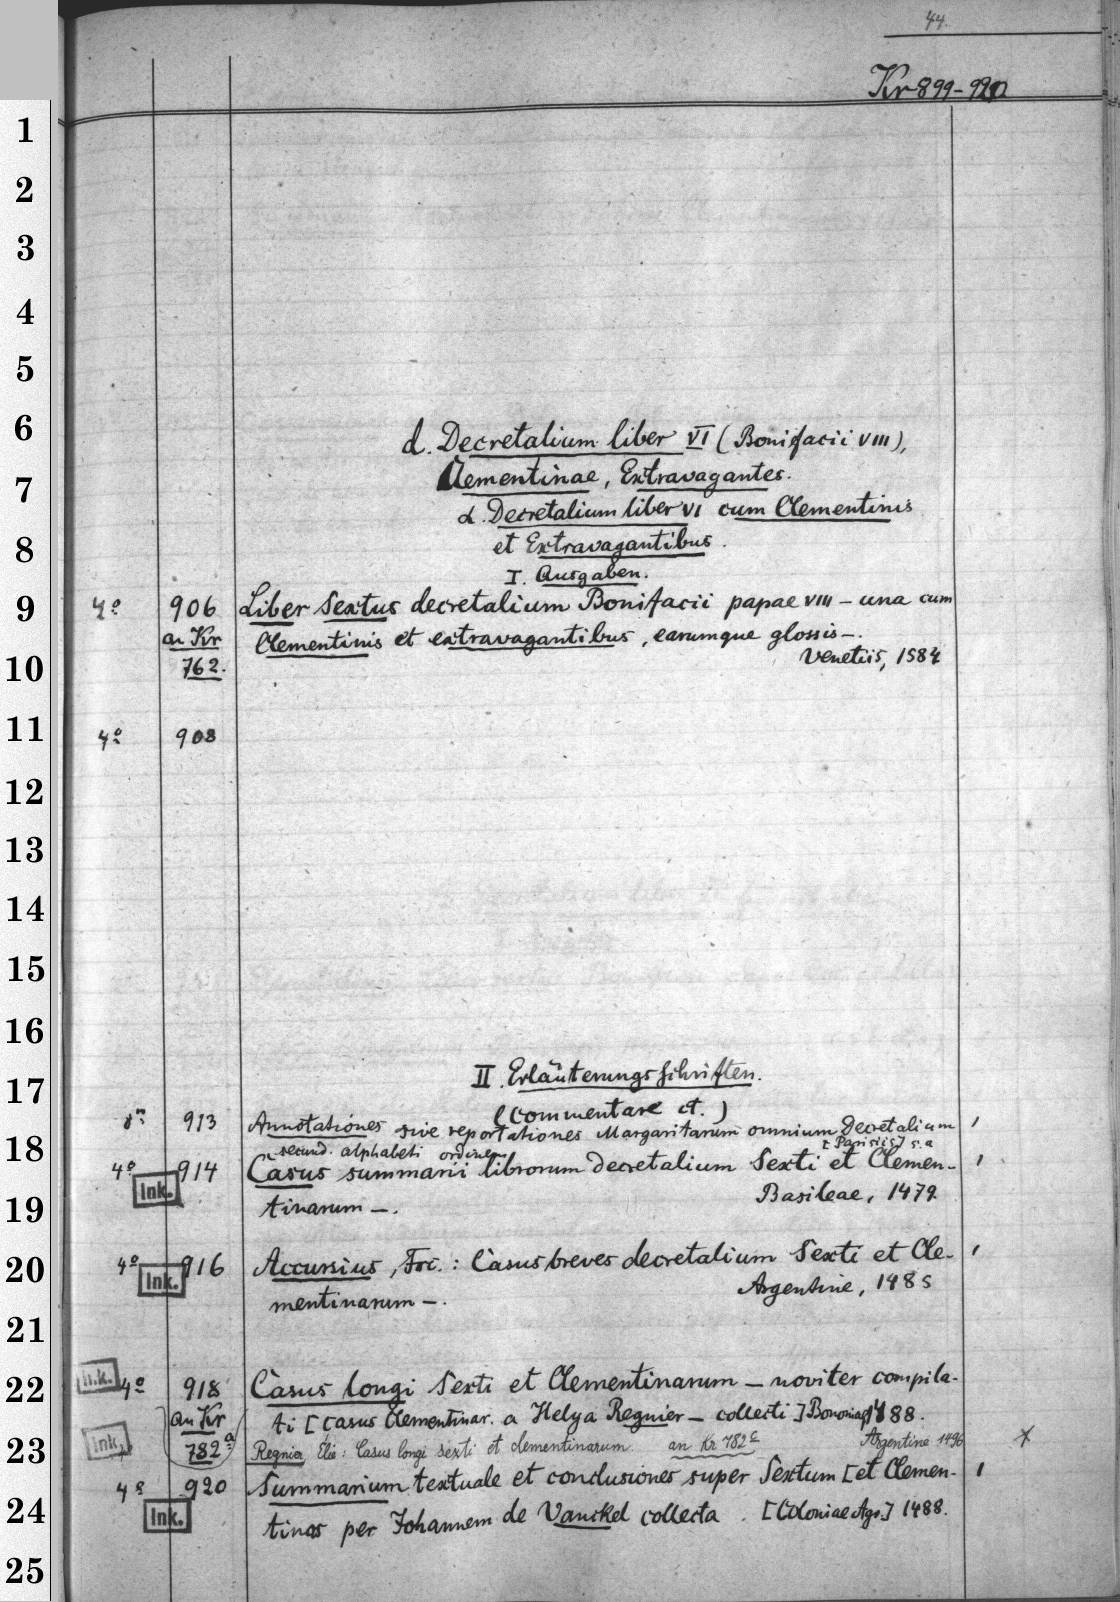 44.
Kr 899-920
1
2
3
4
5
6
d. Decretalium liber VI (Bonifacii VIII),
7
Clementinae, Extravagantes.
α. Decretalium liber VI cum Clementinis
8
et Extravagantibus.
I. Ausgaben.
9 4º 906 Liber Sextus decretalium Bonifacii papae VIII – una cum
an Kr Clementinis et extravagantibus, earumque glossis –.
10 762. Venetiis, 1584
11 4º 908
12
13
14
15
16
17
II. Erläuterungsschriften.
(Commentare ct.)
913 Annotationes sive reportationes Margaritarum omnium Decretalium
18 secund. alphabeti ordinem [Parisiis] s. a
4º 914 Casus summarii librorum decretalium Sexti et Clemen-
Ink. Basileae, 1479.
19 tinarum –.
20 4º 916 Accursius, Frc.: Casus breves decretalium Sexti et Cle-
Ink. Argentine, 1485
mentinarum –.
21
Ink.
22 4º 918 Casus longi Sexti et Clementinarum – noviter compila-
an Kr ti [Casus Clementinar. a Helya Regnier – collecti] Bononiae, 1488.
23 Ink. 782ª Regnier Elie: Casus longi sexti et clementinarum an Kr 782c Argentine 1496
4º 920 Summarium textuale et conclusiones super Sextum [et Clemen-
24 Ink. tinas per Johannem de Vanckel collecta. [Coloniae Agr.] 1488.
25